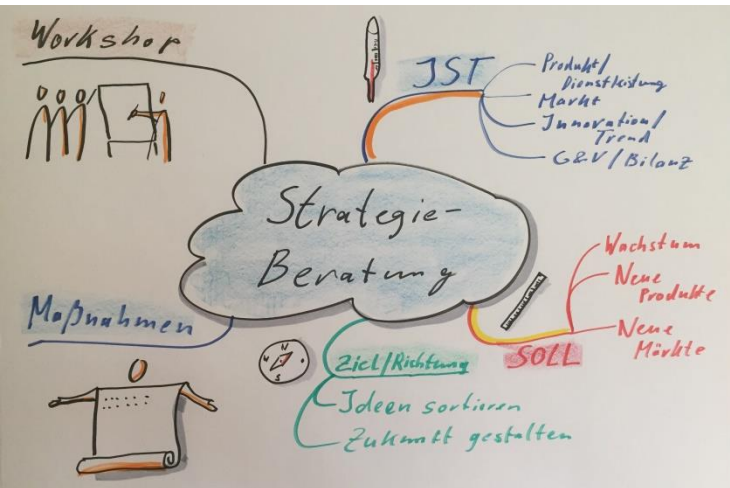 Workshop
IST
Produkt/
Dienstleistung
Markt
Innovation/
Trend
G&V/Bilanz
Strategie-
Beratung
Wachstum
Neue
Produkte
Neue
Märkte
SOLL
Maßnahmen
Ziel/Richtung
Ideen sortieren
Zukunft gestalten
N
S